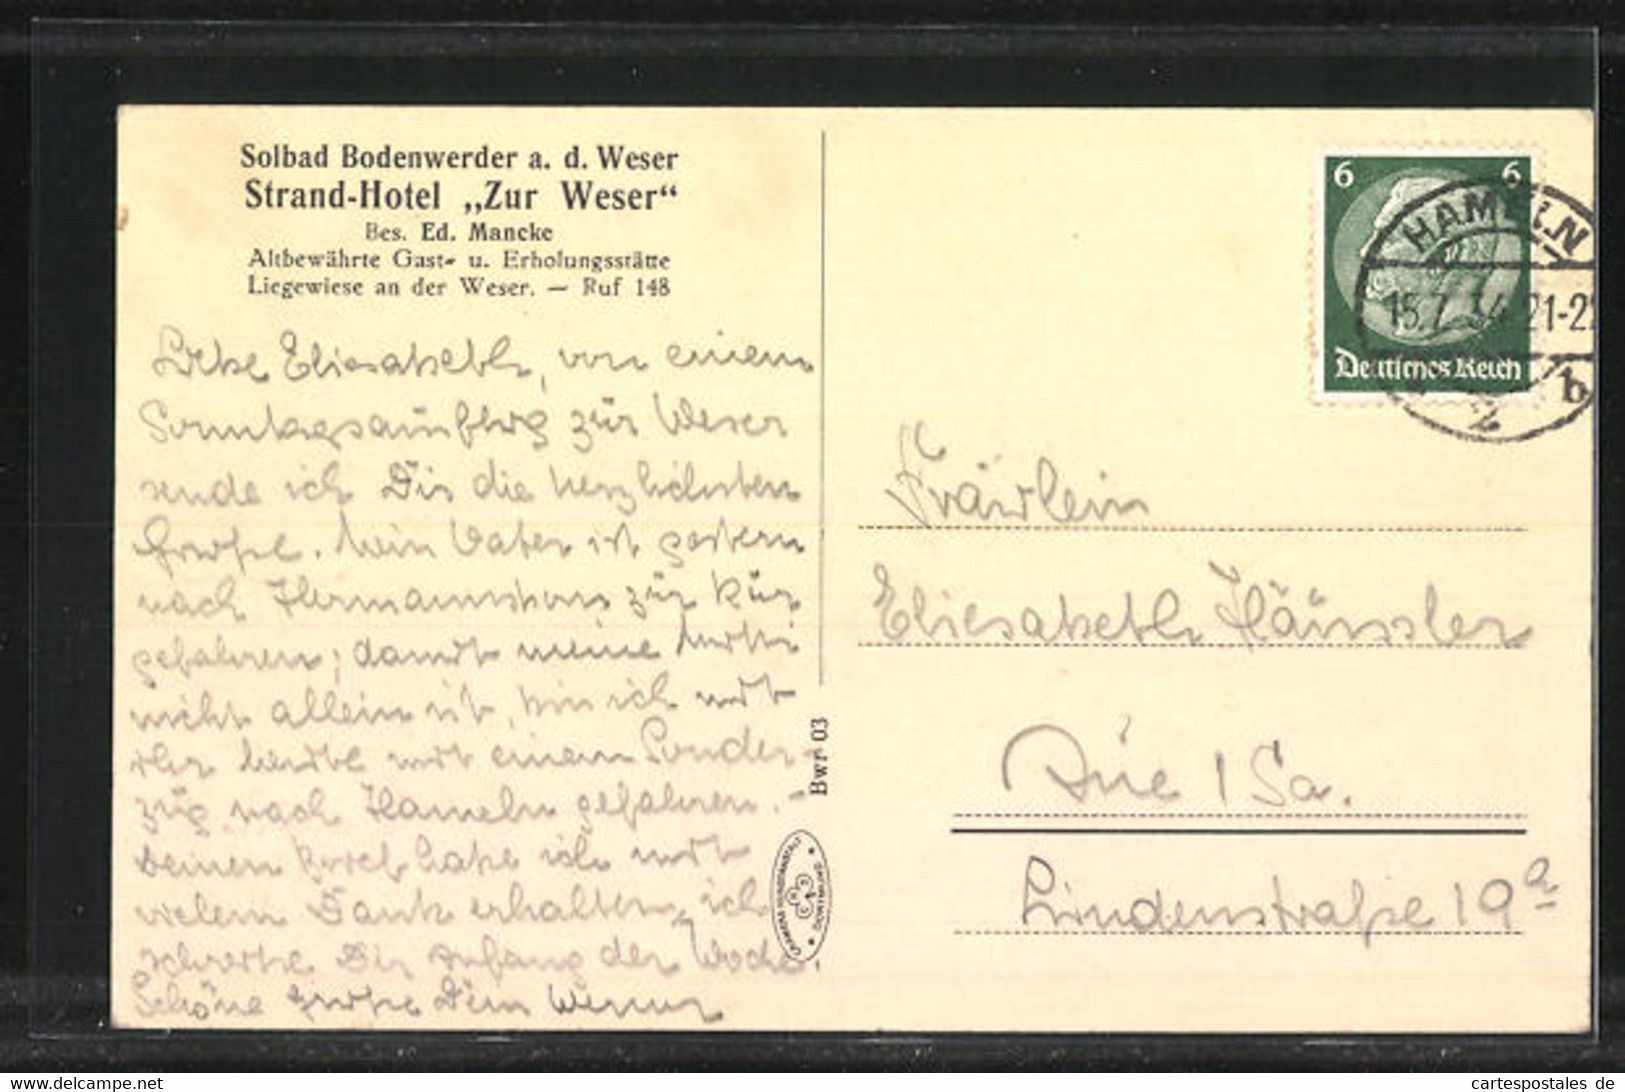 Solbad Bodenwerder a. d. Weser
Strand-Hotel „Zur Weser“
Bes. Ed. Mancke
Altbewährte Gast- u. Erholungsstätte
Liegewiese an der Weser. — Ruf 148
Liebe Eliesabeth, von einem
Sonntagsausflug zur Weser
sende ich Dir die herzlichsten
Grüße. Mein Vater ist gestern
nach Hermannsborn zur Kur
gefahren; damit meine Mutti
nicht allein ist, bin ich mit
ihr heute mit einem Sonder-
zug nach Hameln gefahren. -
Deinen Brief habe ich mit
vielem Dank erhalten, ich
schreibe Dir anfang der Woche.
Schöne Grüße Dein Werner
Bwr 03
6 6
Deutsches Reich
HAMELN
15.7.34 21-22
2 b
Fräulein
Eliesabeth Häussler
Aue / Sa.
Lindenstraße 19a
www.cartespostales.de
cartespostales de